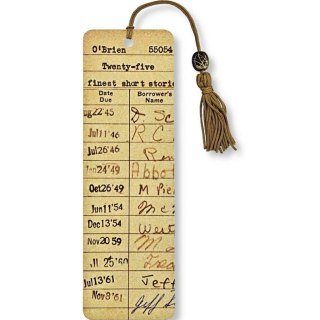 O'Brien 55054
Twenty-five
finest short storie
Date Due Borrower's Name
ug22'45 D. Sc
Jul11'46 R C
Jul26'46 Ren
Jan24'49 Abbot
Oct26'49 M Pie
Jun11'54 Mc
Dec13'54 West
Nov2059
Jl 25'60
Jul13'61 Jeff
Nov8'61 Jeff